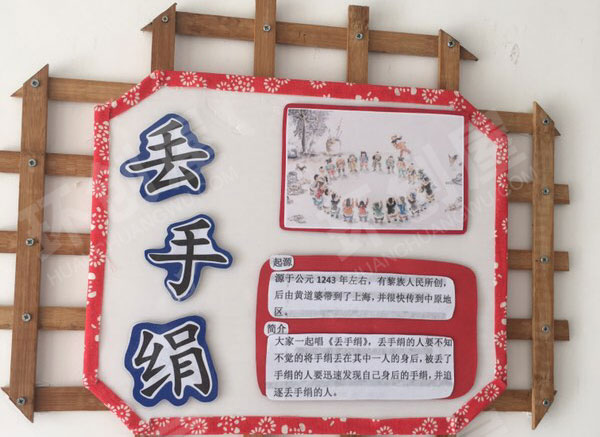 丢
手
绢
起源
源于公元 1243 年左右，有黎族人民所创，
后由黄道婆带到了上海，并很快传到中原地
区。
简介
大家一起唱《丢手绢》，丢手绢的人要不知
不觉的将手绢丢在其中一人的身后，被丢了
手绢的人要迅速发现自己身后的手绢，并追
逐丢手绢的人。